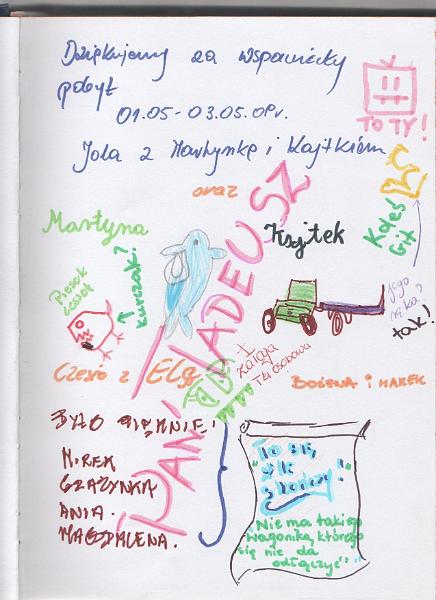 Dziękujemy za wspaniały
pobyt
01.05 - 03.05.09r.
Jola z Martynką i Kajtkiem
TO TY!
oraz
Martyna
Kajtek
Koleś
Git
Piesek
Leszek
↑ Kurczak?
PAN TADEUSZ
tak!
Czesio z Elą
I załoga
osobowa
BOŻENA I MAREK
BYŁO PIĘKNIE!
MIREK
GRAŻYNKA
ANIA
MAGDALENA.
"To się
skończy!"
"Nie ma takiego
wagonika, którego
się nie da
odłączyć"